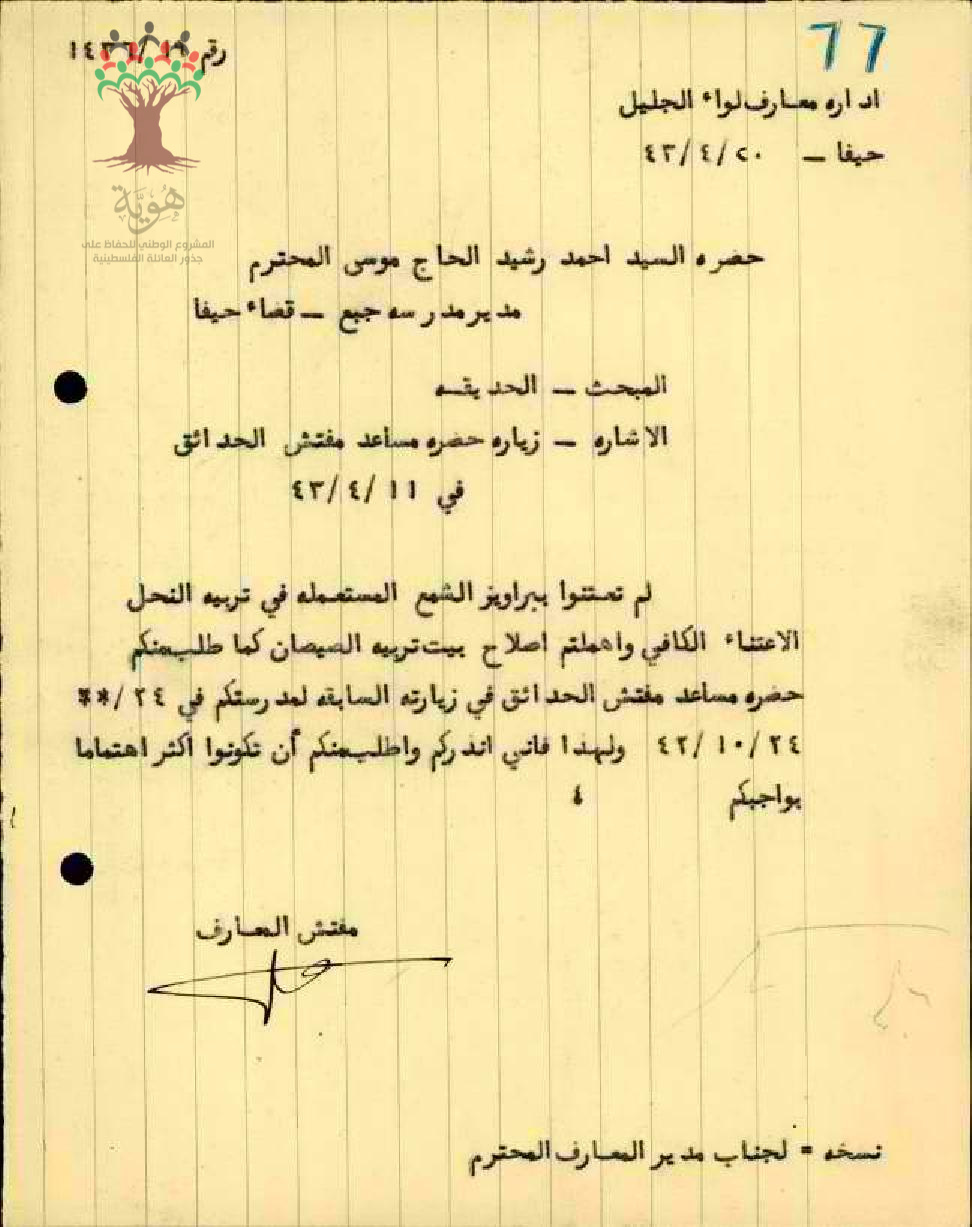 77
رقم ١٩/١٤٣٦
اداره معارف لواء الجليل
حيفا — ٢٠/٤/٤٣
هُوِيَّة
المشروع الوطني للحفاظ على
جذور العائلة الفلسطينية
حضره السيد احمد رشيد الحاج موسى المحترم
مدير مدرسه جبع — قضاء حيفا
المبحث — الحديقه
الاشاره — زياره حضره مساعد مفتش الحدائق
في ١١/٤/٤٣
لم تعتنوا ببراويز الشمع المستعمله في تربيه النحل
الاعتناء الكافي واهملتم اصلاح بيت تربيه الصيصان كما طلب منكم
حضره مساعد مفتش الحدائق في زيارته السابقه لمدرستكم في ٢٤/**
٢٤/١٠/٤٢ ولهذا فاني انذركم واطلب منكم أن تكونوا أكثر اهتماما
بواجبكم ٤
مفتش المعارف
نسخه = لجناب مدير المعارف المحترم